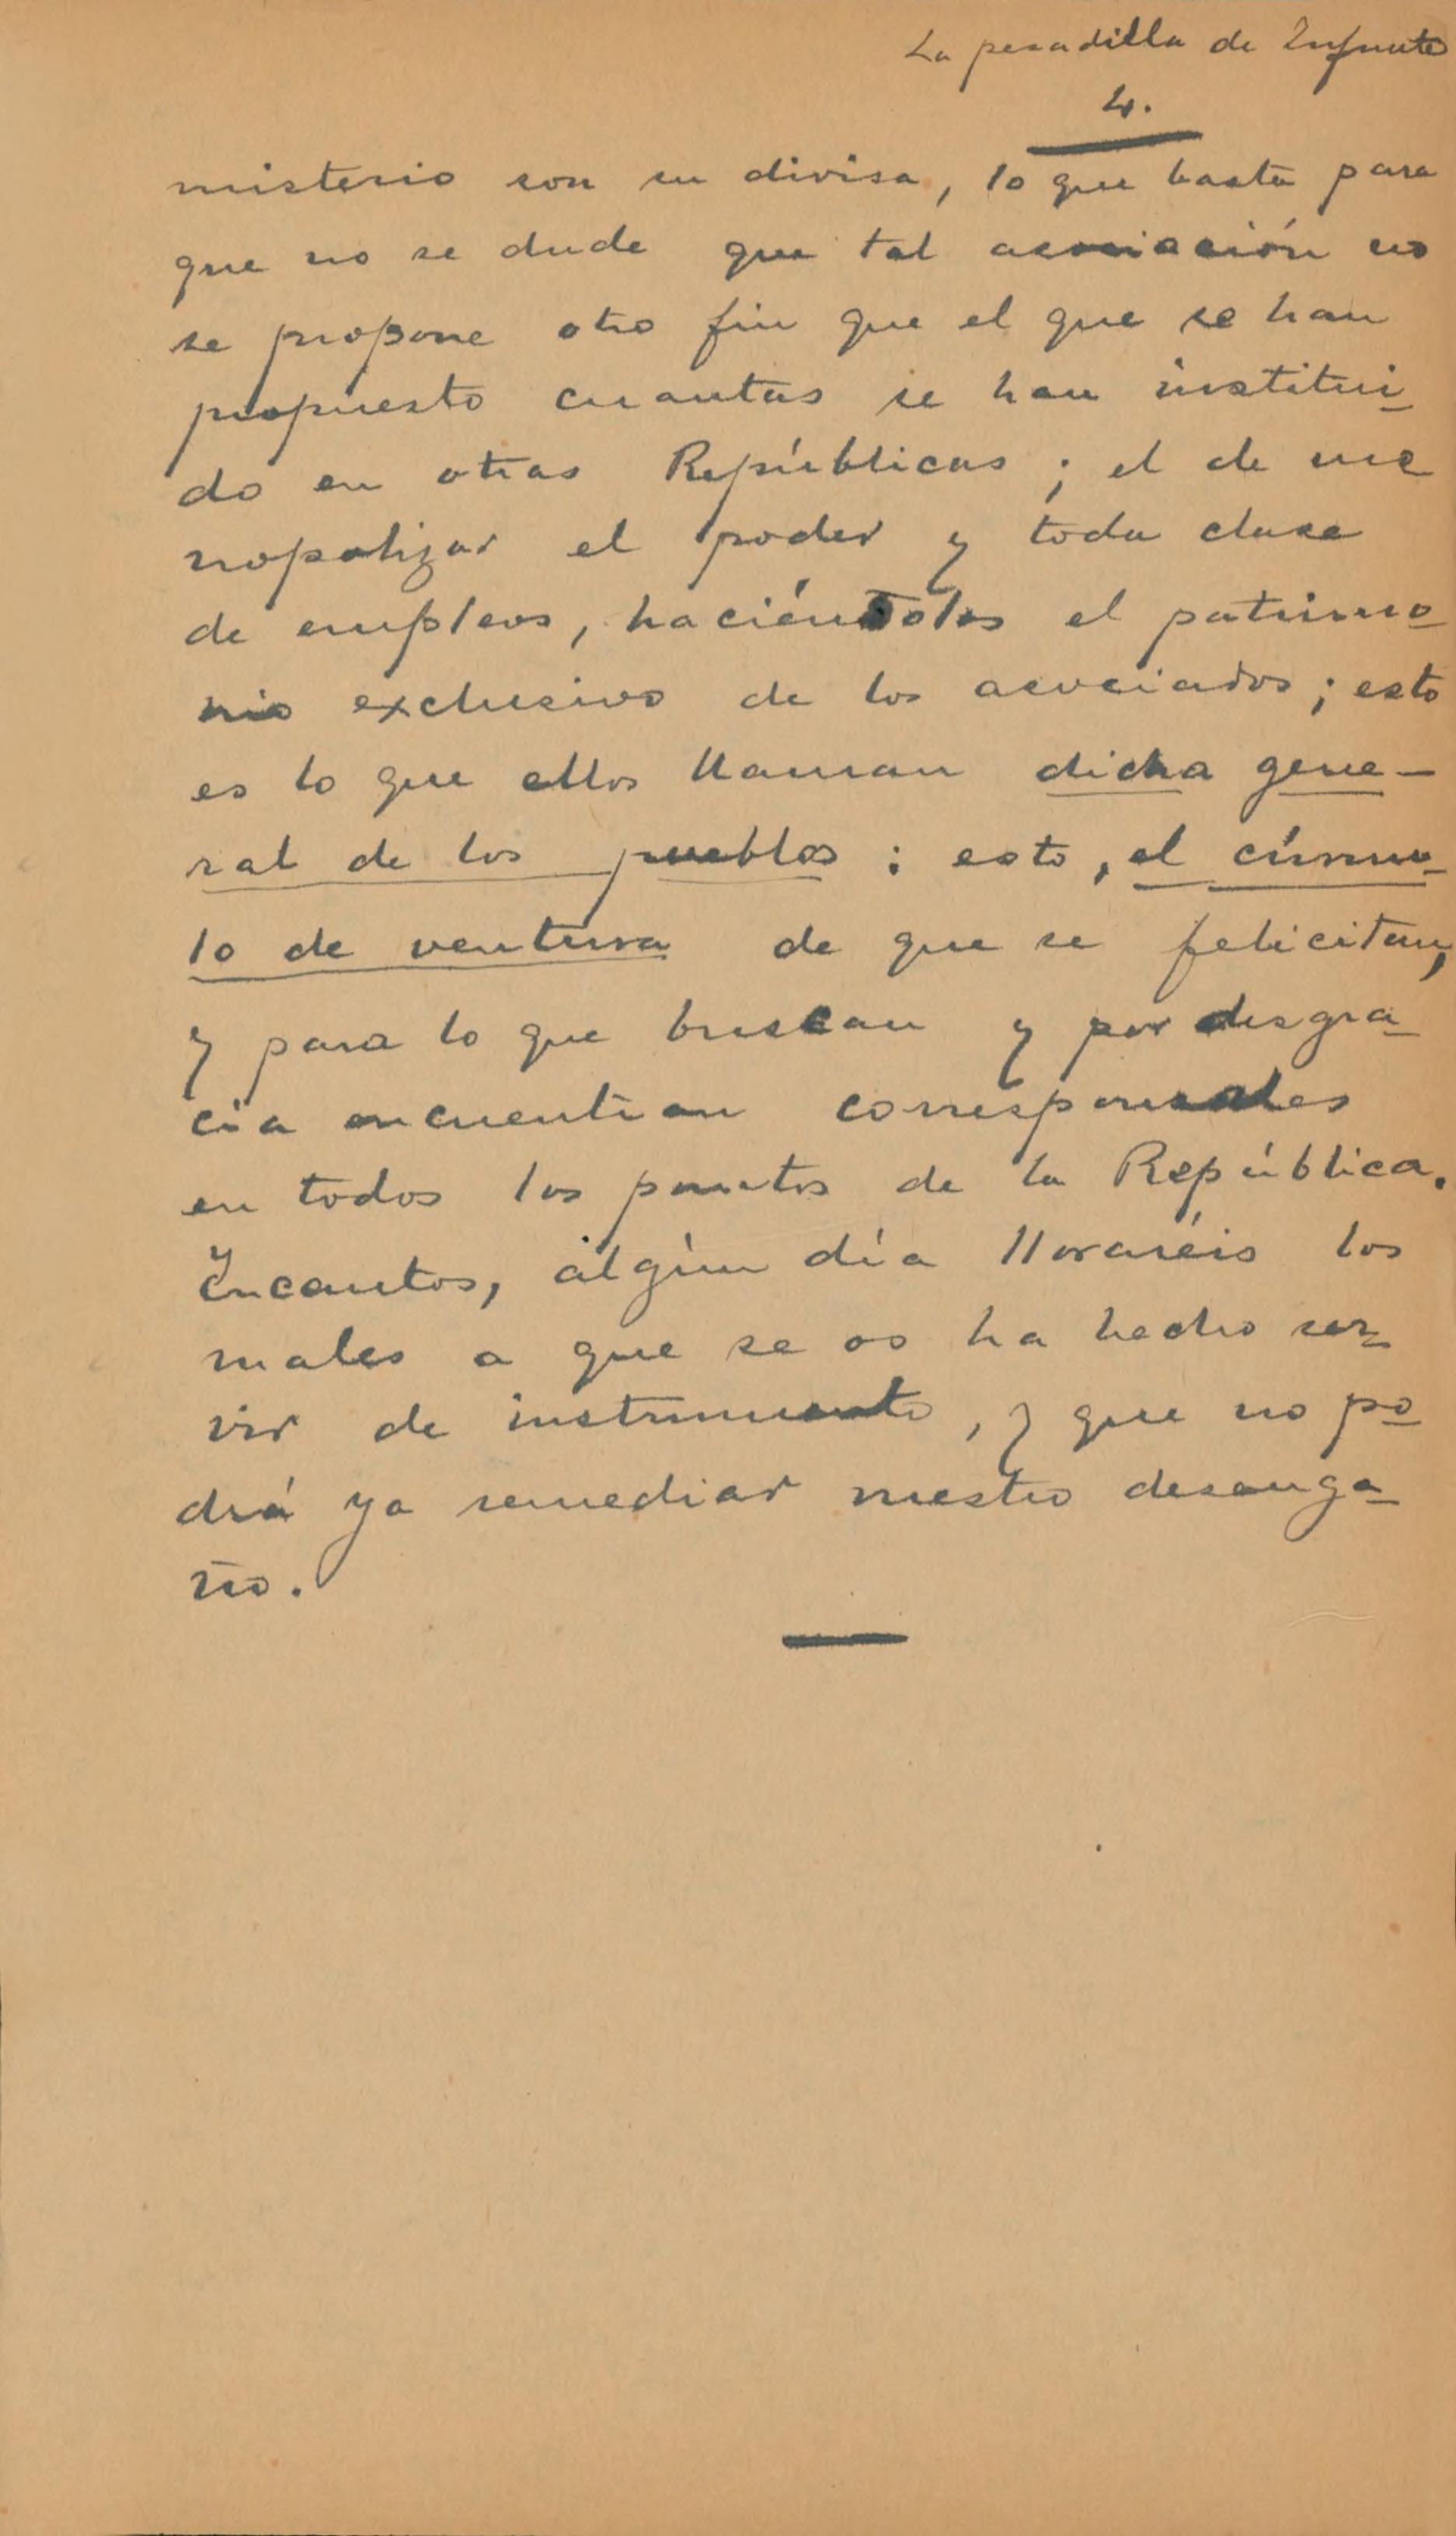 La pesadilla de Infante
4.
misterio son su divisa, lo que basta para
que no se dude que tal asociación no
se propone otro fin que el que se han
propuesto cuantas se han institui-
do en otras Repúblicas; el de mo
nopolizar el poder y toda clase
de empleos, haciéndolos el patrimo
nio exclusivo de los asociados; esto
es lo que ellos llaman dicha gene-
ral de los pueblos: esto, el cúmu-
lo de ventura de que se felicitan,
y para lo que buscan y por desgra-
cia encuentran corresponsales
en todos los puntos de la República.
Incautos, algún día lloraréis los
males a que se os ha hecho ser-
vir de instrumento, y que no po
drá ya remediar nuestro desenga-
ño.